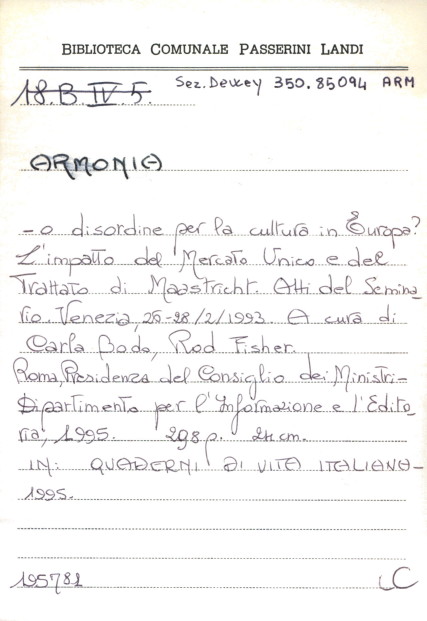 BIBLIOTECA COMUNALE PASSERINI LANDI
18.B.IV.5. Sez. Dewey 350.85094 ARM
ARMONIA
- o disordine per la cultura in Europa?
L'impatto del Mercato Unico e del
Trattato di Maastricht. Atti del Semina
rio. Venezia, 26-28/2/1993. A cura di
Carla Bodo, Rod Fisher.
Roma, Presidenza del Consiglio dei Ministri-
Dipartimento per l'Informazione e l'Edito
ria, 1995. 298 p. 24 cm.
IN: QUADERNI DI VITA ITALIANA-
1995.
195782 LC